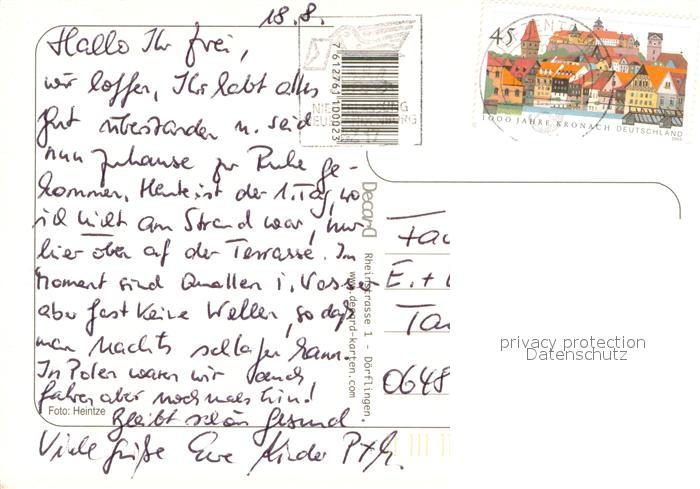 18.8.
Hallo Ihr frei,
wir hoffen, Ihr habt alles
gut überstanden u. seid
nun zuhause zur Ruhe ge-
kommen. Heute ist der 1. Tag, wo
ich nicht am Strand war, nur
hier oben auf der Terrasse. Im
Moment sind Quallen i. Wasser
aber fast keine Wellen, so daß
man nachts schlafen kann.
In Polen waren wir auch
fahren aber nochmals hin!
Bleibt schön gesund.
Viele Grüße Eure Kinder P+
Foto: Heintze
7612763 100023
45
1000 JAHRE KRONACH DEUTSCHLAND
Decard
Rheinstrasse 1 - Dörflingen,
www.decard-karten.com
E. +
0648
privacy protection
Datenschutz